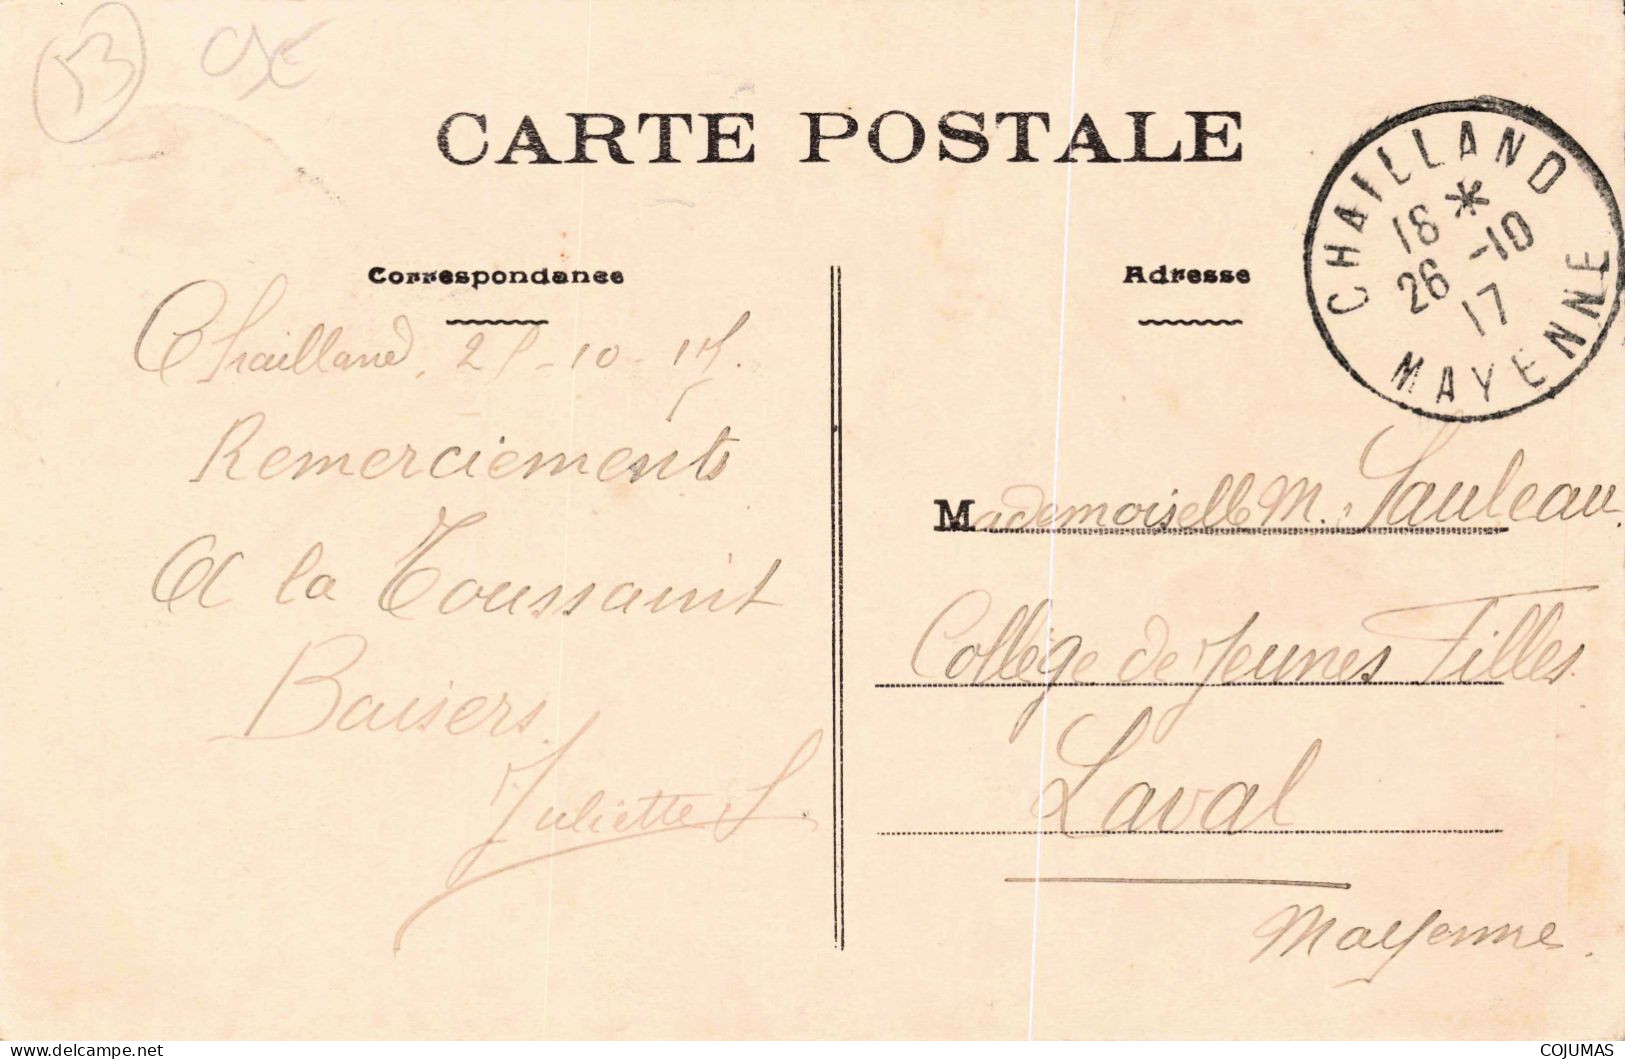 53
CARTE POSTALE
CHAILLAND
18 *
26 -10
17
MAYENNE
Correspondance
Adresse
Chailland, 25-10-17.
Remerciements
A la Toussaint
Baisers.
Juliette S.
Mademoiselle M. Sauleau.
Collège de Jeunes Filles.
Laval
Mayenne.
delcampe.net
COJUMAS